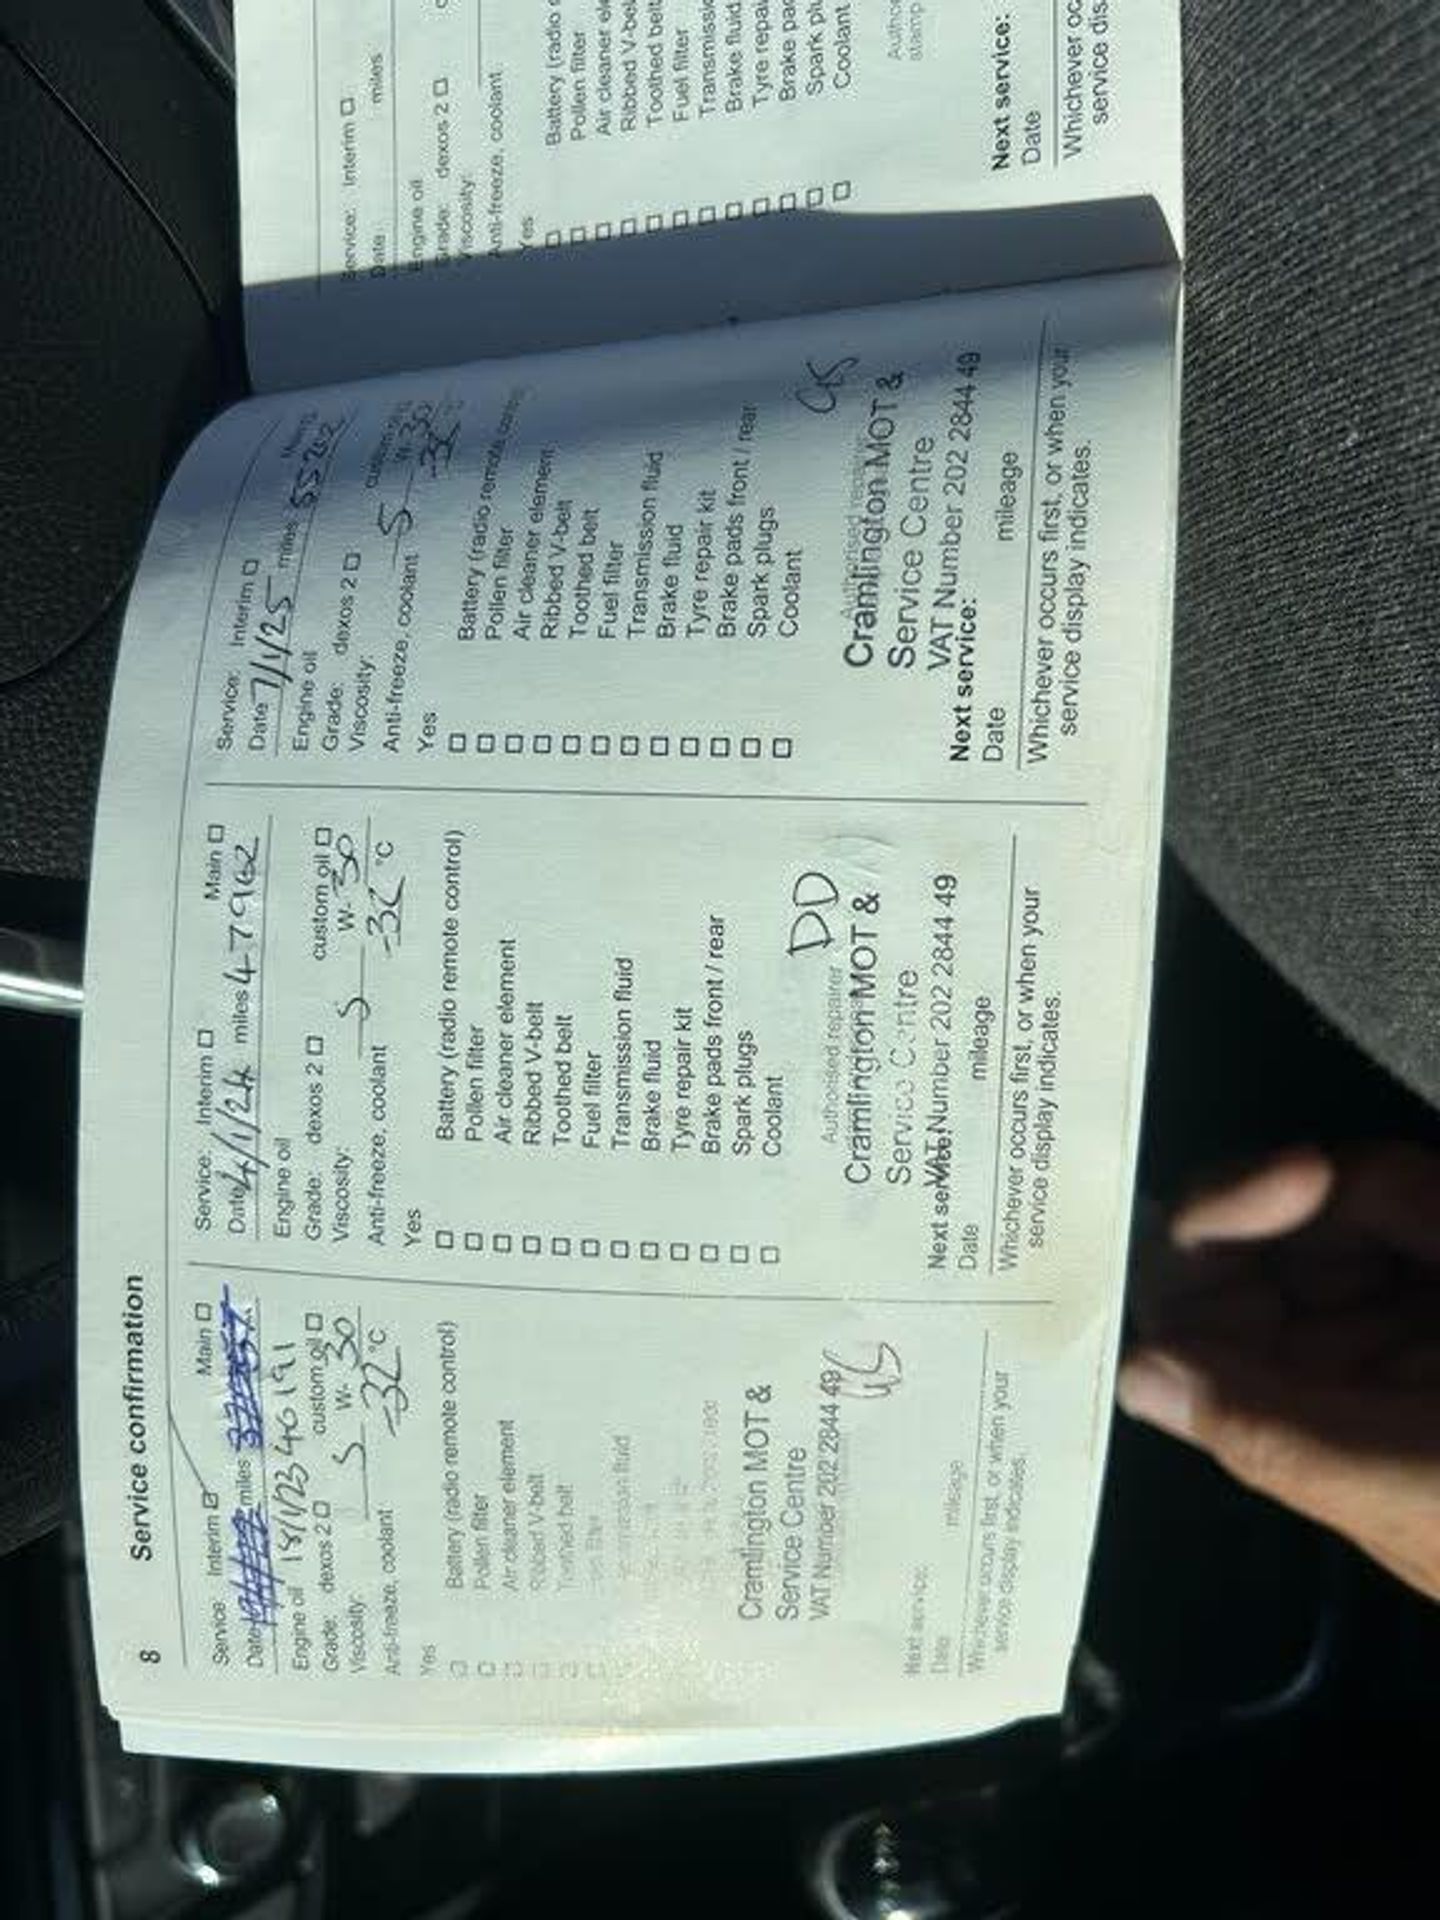 8 Service confirmation
Service Interim ☑ Main ☐
Date miles
Engine oil 18/1/23 40191
Grade: dexos 2 ☐ custom oil ☐
Viscosity: 5 W- 30
Anti-freeze, coolant -32 °C
Yes
☐ Battery (radio remote control)
☐ Pollen filter
☐ Air cleaner element
☐ Ribbed V-belt
☐ Toothed belt
Cramlington MOT &
Service Centre
VAT Number 202 2844 49
Next service:
Date mileage
Whichever occurs first, or when your
service display indicates.
Service: Interim ☐ Main ☐
Date 4/1/24 miles 47962
Engine oil
Grade: dexos 2 ☐ custom oil ☐
Viscosity: 5 W- 30
Anti-freeze, coolant °C
Yes
☐ Battery (radio remote control)
☐ Pollen filter
☐ Air cleaner element
☐ Ribbed V-belt
☐ Toothed belt
☐ Fuel filter
☐ Transmission fluid
☐ Brake fluid
☐ Tyre repair kit
☐ Brake pads front / rear
☐ Spark plugs
☐ Coolant
DD
Authorised repairer
Cramlington MOT &
Service Centre
VAT Number 202 2844 49
Next service:
Date mileage
Whichever occurs first, or when your
service display indicates.
Service: Interim ☐
Date 7/1/25 miles 55262
Engine oil
Grade: dexos 2 ☐ custom
Viscosity: 5 W- 30
Anti-freeze, coolant
Yes
☐ Battery (radio remote control)
☐ Pollen filter
☐ Air cleaner element
☐ Ribbed V-belt
☐ Toothed belt
☐ Fuel filter
☐ Transmission fluid
☐ Brake fluid
☐ Tyre repair kit
☐ Brake pads front / rear
☐ Spark plugs
☐ Coolant
Authorised repairer
Cramlington MOT &
Service Centre
VAT Number 202 2844 49
Next service:
Date mileage
Whichever occurs first, or when your
service display indicates.
Service: Interim ☐
Date miles
Engine oil
Grade: dexos 2 ☐
Viscosity:
Anti-freeze, coolant
Yes
☐ Battery (radio
☐ Pollen filter
☐ Air cleaner
☐ Ribbed
☐ Toothed belt
☐ Fuel filter
☐
☐ Brake fluid
☐ Tyre
☐ Brake
☐ Spark
☐ Coolant
stamp
Next service:
Date
Whichever
service